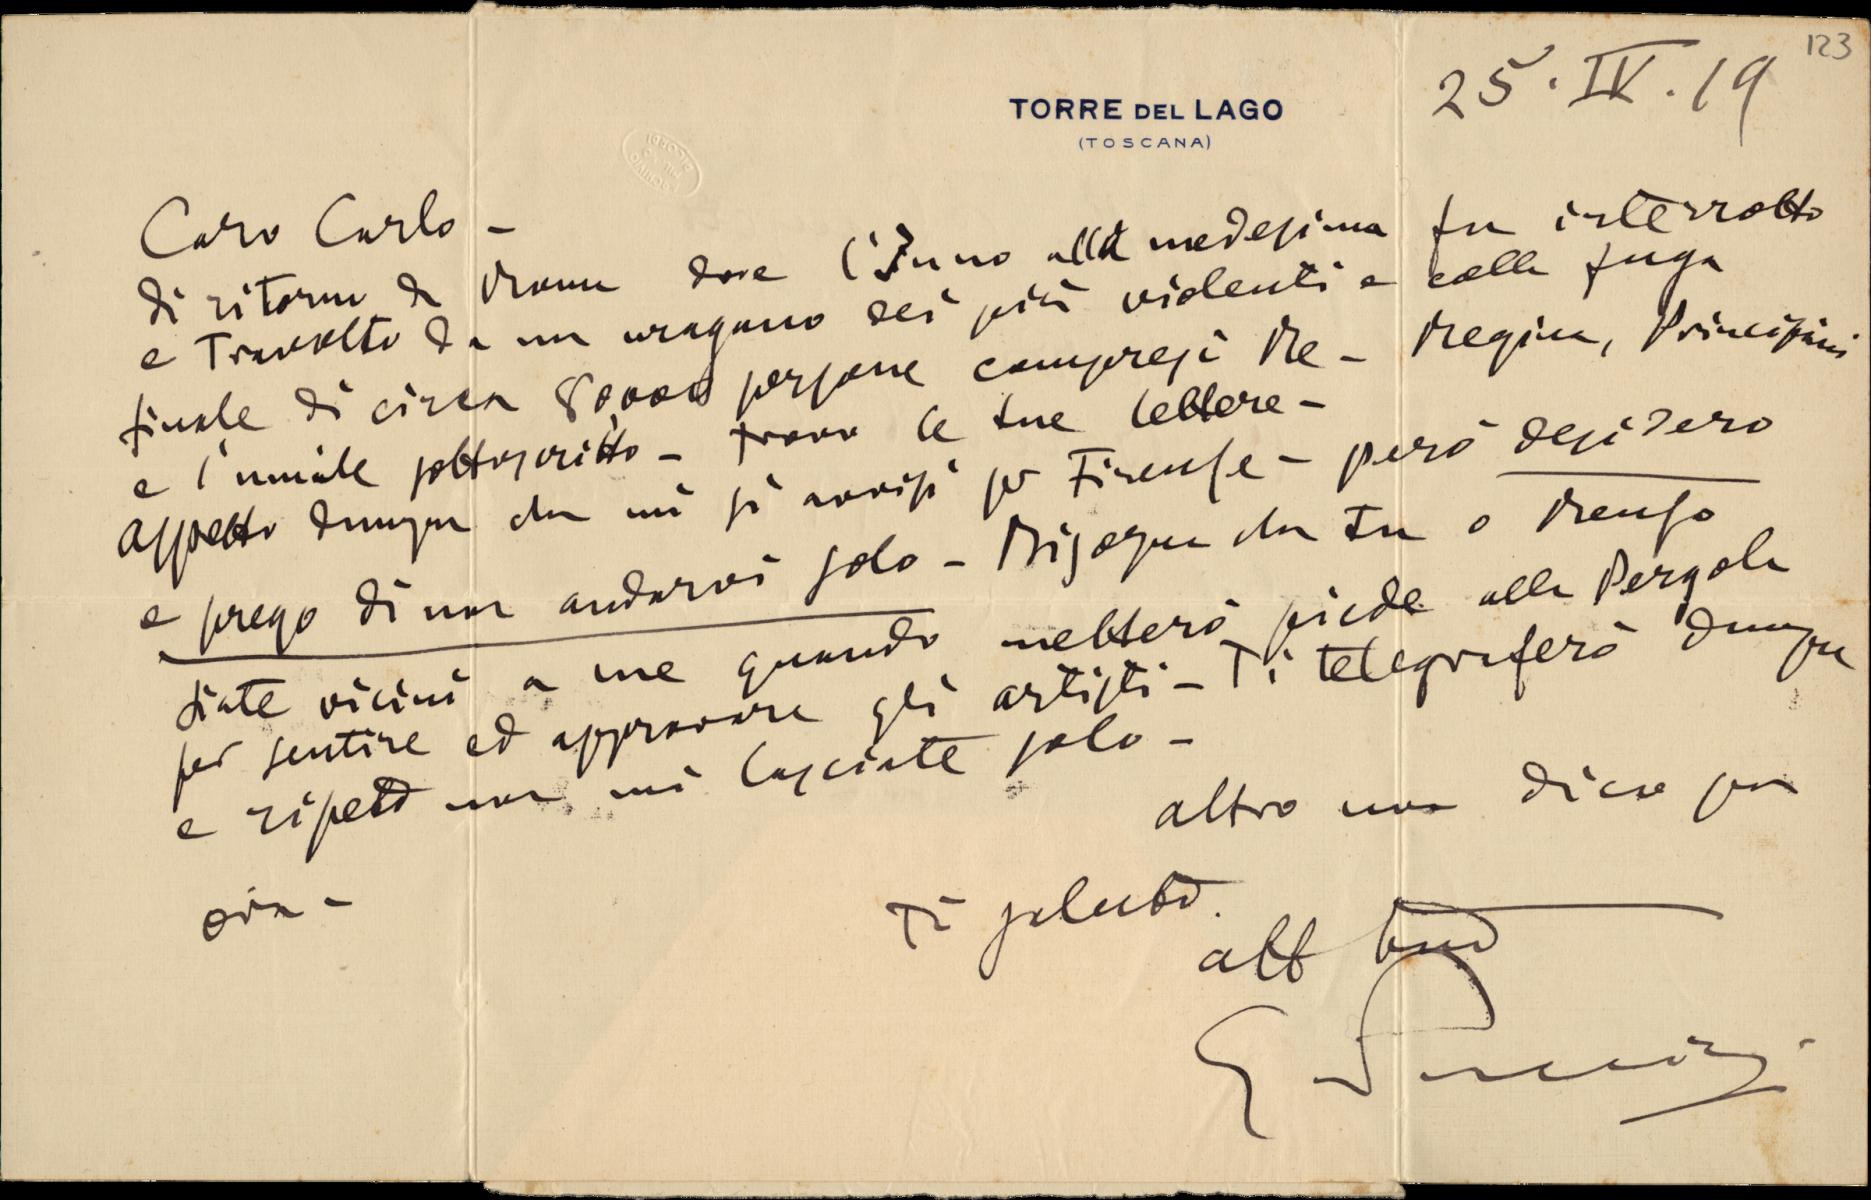 123
25.IV.19
TORRE DEL LAGO
(TOSCANA)
Caro Carlo -
di ritorno da Roma dove l'Inno alla medesima fu interrotto
e travolto da un uragano dei più violenti e colla fuga
finale di circa 80,000 persone compresi Re - Regina, Principini
e l'umile sottoscritto - trovo le tue lettere -
aspetto dunque che mi si avvisi per Firenze - però desidero
e prego di non andarvi solo - Bisogna che tu o Renzo
siate vicini a me quando metterò piede alla Pergola
per sentire ed approvare gli artisti - Ti telegraferò dunque
e ripeto non mi lasciate solo -
altro non dico per
ora -
Ti saluto.
aff tuo
G Puccini